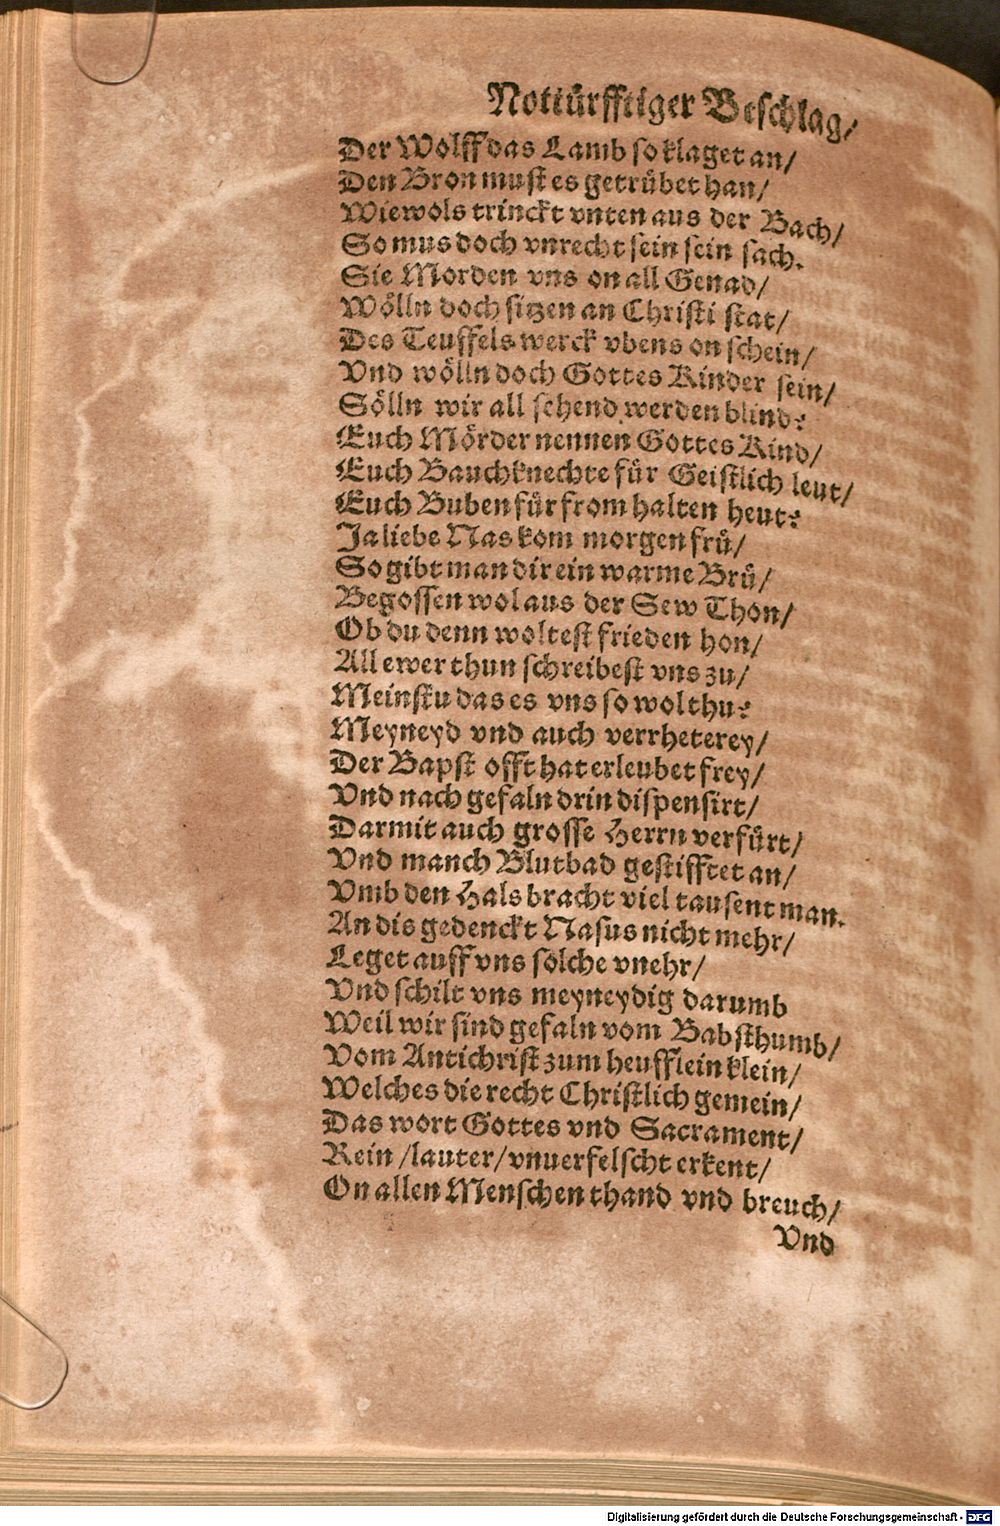 Nottürfftiger Beschlag/
Der Wolff das Lamb so klaget an/
Den Bron must es getrübet han/
Wiewols trinckt vnten aus der Bach/
So mus doch vnrecht sein sein sach.
Sie Morden vns on all Genad/
Wölln doch sitzen an Christi stat/
Des Teuffels werck vbens on schein/
Vnd wölln doch Gottes Kinder sein/
Sölln wir all sehend werden blind?
Euch Mörder nennen Gottes Kind/
Euch Bauchknechte für Geistlich leut/
Euch Buben für from halten heut?
Ja liebe Nas kom morgen frü/
So gibt man dir ein warme Brü/
Begossen wol aus der Sew Thon/
Ob du denn woltest frieden hon/
All ewer thun schreibest vns zu/
Meinstu das es vns so wol thu?
Meyneyd vnd auch verrheterey/
Der Bapst offt hat erleubet frey/
Vnd nach gefaln drin dispensirt/
Darmit auch grosse Herrn verfürt/
Vnd manch Blutbad gestifftet an/
Vmb den Hals bracht viel tausent man.
An dis gedenckt Nasus nicht mehr/
Leget auff vns solche vnehr/
Vnd schilt vns meyneydig darumb
Weil wir sind gefaln vom Babsthumb/
Vom Antichrist zum heufflein klein/
Welches die recht Christlich gemein/
Das wort Gottes vnd Sacrament/
Rein/lauter/vnuerfelscht erkent/
On allen Menschenthand vnd breuch/
Vnd
Digitalisierung gefördert durch die Deutsche Forschungsgemeinschaft - DFG